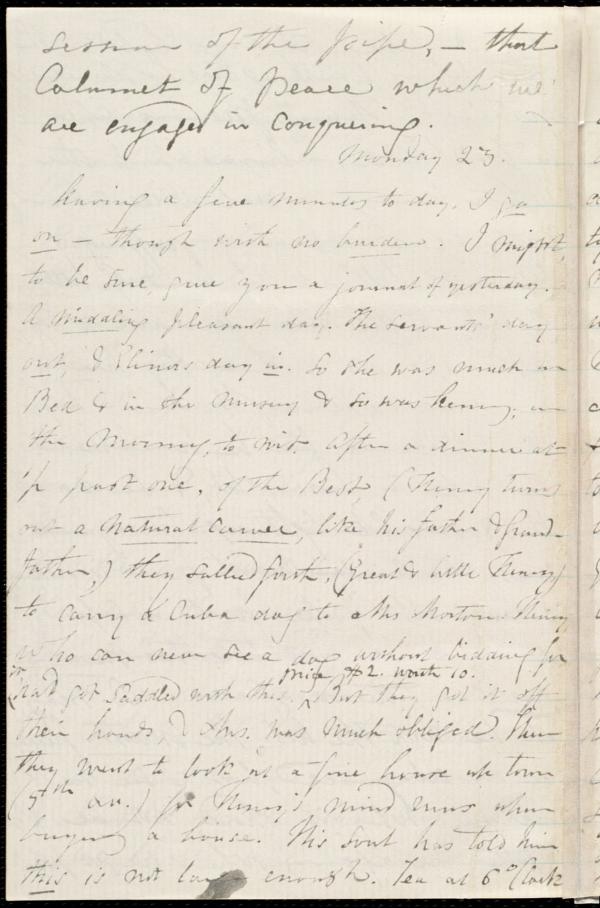 session of the pipe, — that
Calumet of Peace which we
are engaged in Conquering.
Monday 23.
Having a few minutes to day, I go
on — though with no burden. I might,
to be sure, give you a journal of yesterday.
A middling pleasant day. The servants' day
out, & Elinor's day in. So she was much in
Bed & in the Nursery & so was Henry, in
the Morning, to wit. After a dinner at
1/2 past one, of the Best, (Henry turns
out a natural carver, like his father & Grand-
father,) they sallied forth, (Great & little Henry)
to carry a Cuba dog to Mrs Morton. Henry
who can never see a dog without bidding for
it had got saddled with this. price $2. worth 10. But they got it off
their hands, & Mrs. was much obliged. Then
they went to look at a fine house up town
(5th av.) for Henry's mind runs upon
buying a house. His soul has told him
this is not large enough. Tea at 6 o'Clock